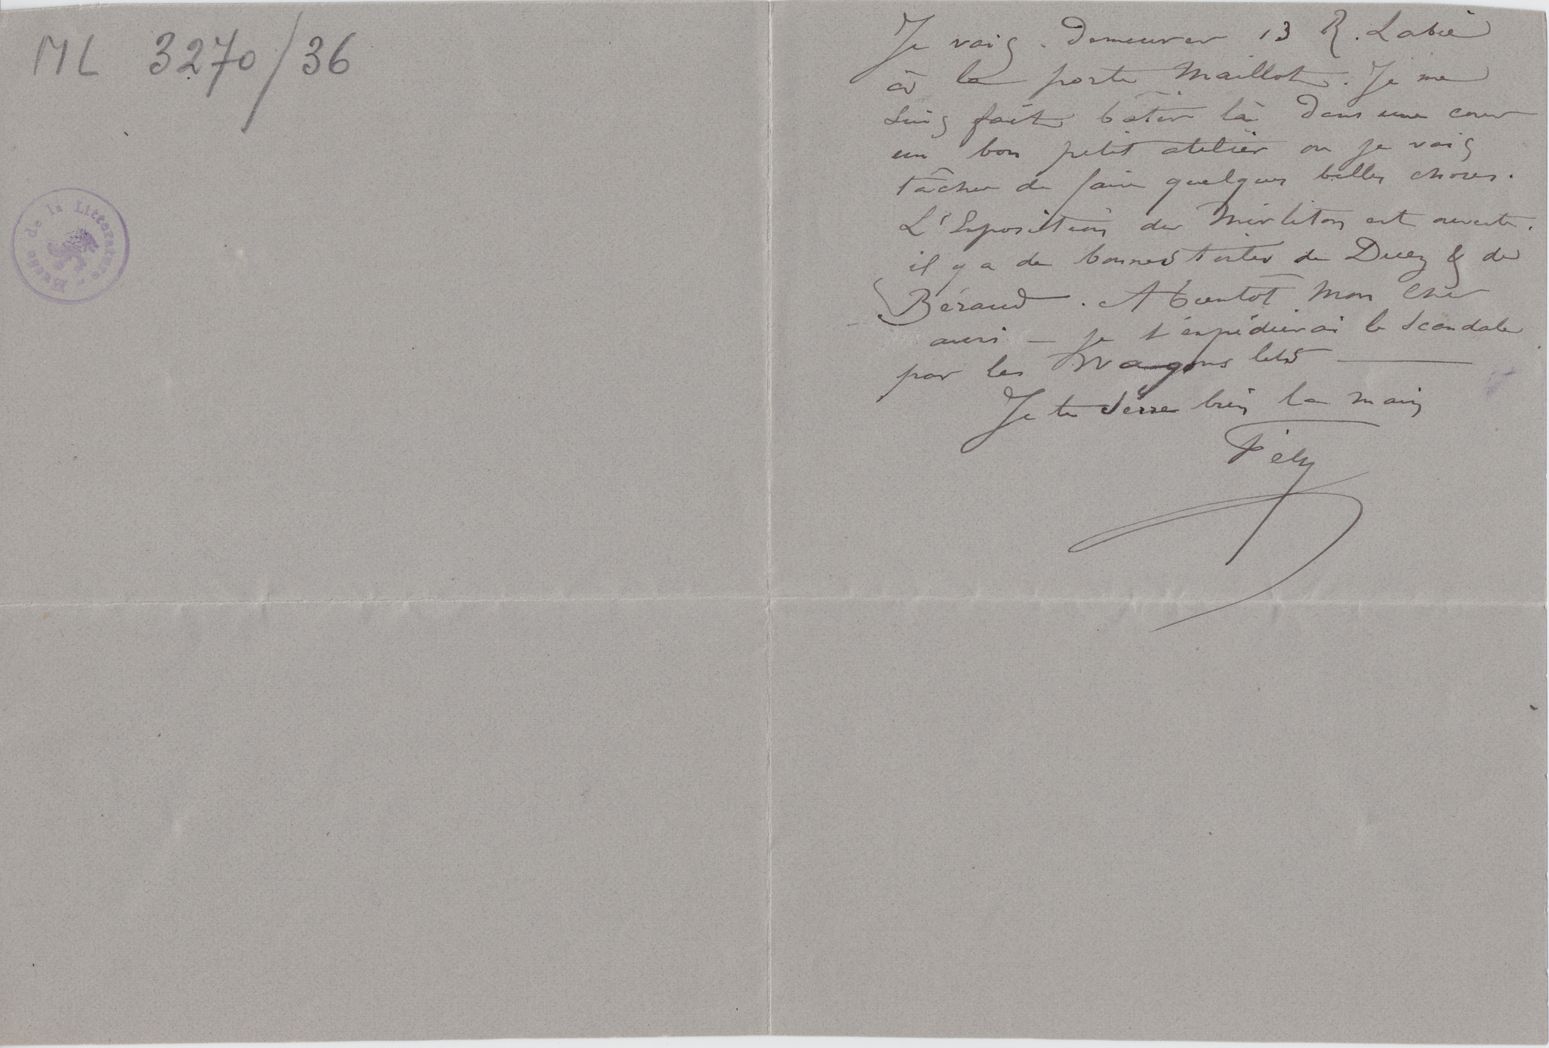 ML 3270/36
Musée de la Littérature
Je vais demeurer 13 R. Labié
à la porte Maillot. Je me
suis fait bâtir là dans une cour
un bon petit atelier ou je vais
tâcher de faire quelques belles choses.
L'Exposition du Mirliton est ouverte.
il y a de bonnes toiles de Duez & de
Béraud. A bientot mon cher
ami — je t'expédierai le Scandale
par les Wagons lits —
Je te serre bien la main
Fély